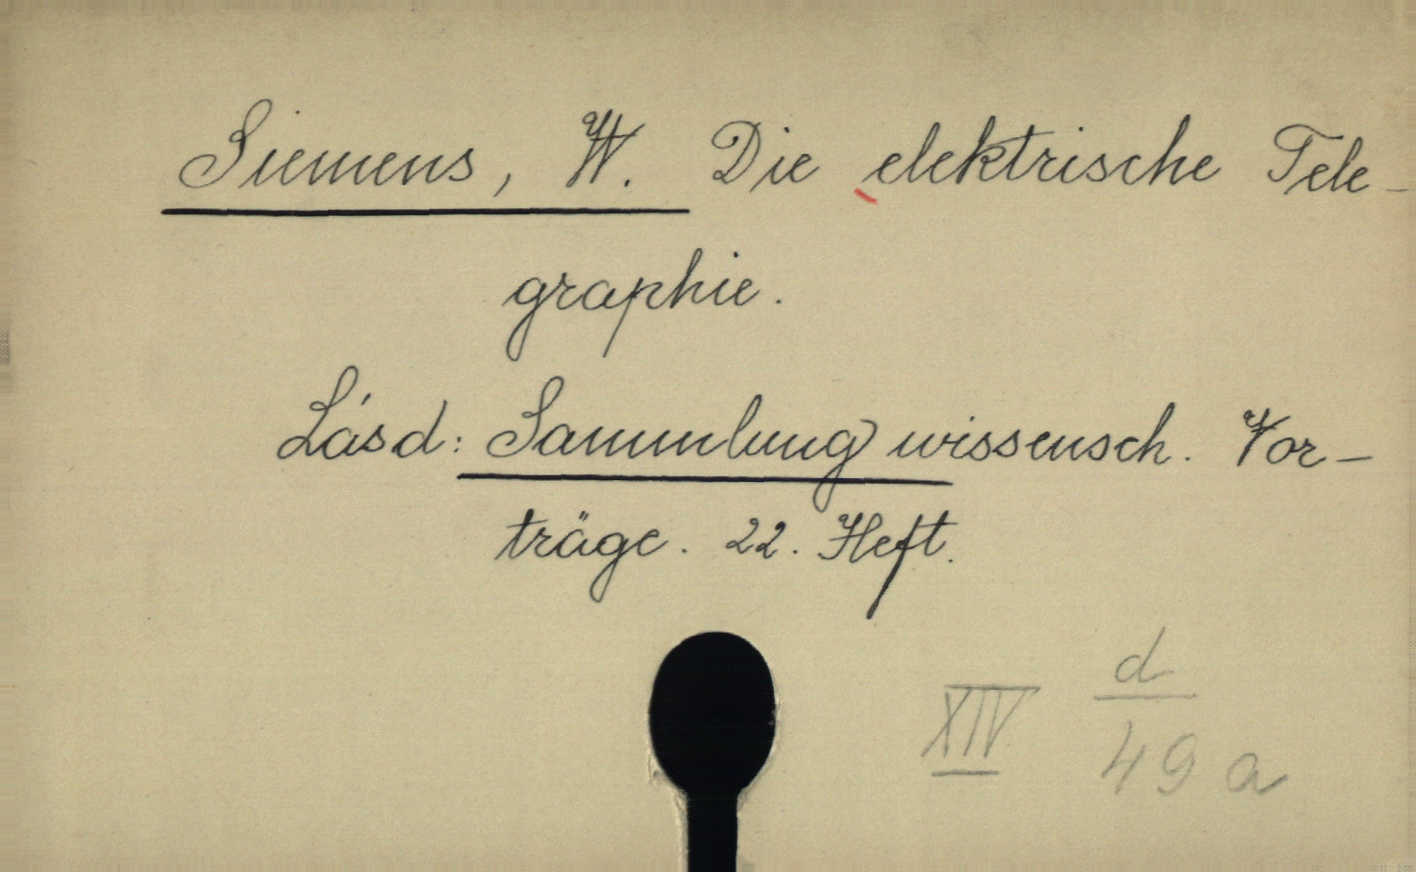 Siemens, W. Die elektrische Tele-
graphie.
Lásd: Sammlung wissensch. Vor-
träge. 22. Heft.
XIV d
49 a